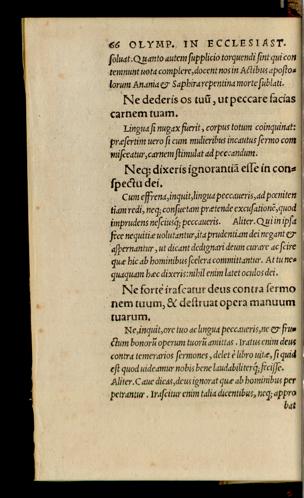 66 OLYMP. IN ECCLESIAST.
soluat. Quanto autem supplicio torquendi sint qui con
temnunt uota complere, docent nos in Actibus aposto
lorum Anania & Saphira repentina morte sublati.
Ne dederis os tuũ, ut peccare facias
carnem tuam.
Lingua si nugax fuerit, corpus totum coinquinat:
præsertim uero si cum mulieribus incautus sermo com
misceatur, carnem stimulat ad peccandum.
Neq; dixeris ignorantiã esse in con-
spectu dei.
Cum effrena, inquit, lingua peccaueris, ad pœniten
tiam redi, neq; consuetam prætende excusationẽ, quod
imprudens nesciusq́; peccaueris. Aliter. Qui in ipsa
fece nequitiæ uolutantur, ita prudentiam dei negant &
aspernantur, ut dicant dedignari deum curare ac scire
quæ hic ab hominibus scelera committantur. At tu ne-
quaquam hæc dixeris: nihil enim latet oculos dei.
Ne forte irascatur deus contra sermo
nem tuum, & destruat opera manuum
tuarum.
Ne, inquit, ore tuo ac lingua peccaueris, ne & fru-
ctum bonorũ operum tuorũ amittas. Iratus enim deus
contra temerarios sermones, delet è libro uitæ, si quid
est quod uideamur nobis bene laudabiliterq́; fecisse.
Aliter. Caue dicas, deus ignorat quæ ab hominibus per
petrantur. Irascitur enim talia dicentibus, neq; appro
bat